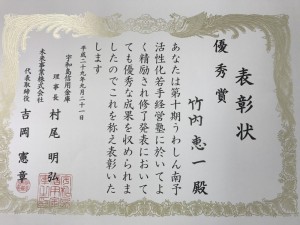 表彰状
優秀賞
竹内恵一殿
あなたは第十期うわしん南予
活性化若手経営塾に於いてよ
く精励され修了発表において
も優秀な成果を収められま
したのでこれを称え表彰いた
します
平成二十九年九月二十一日
宇和島信用金庫
理事長 村尾明弘
未来事業株式会社
代表取締役 吉岡憲章